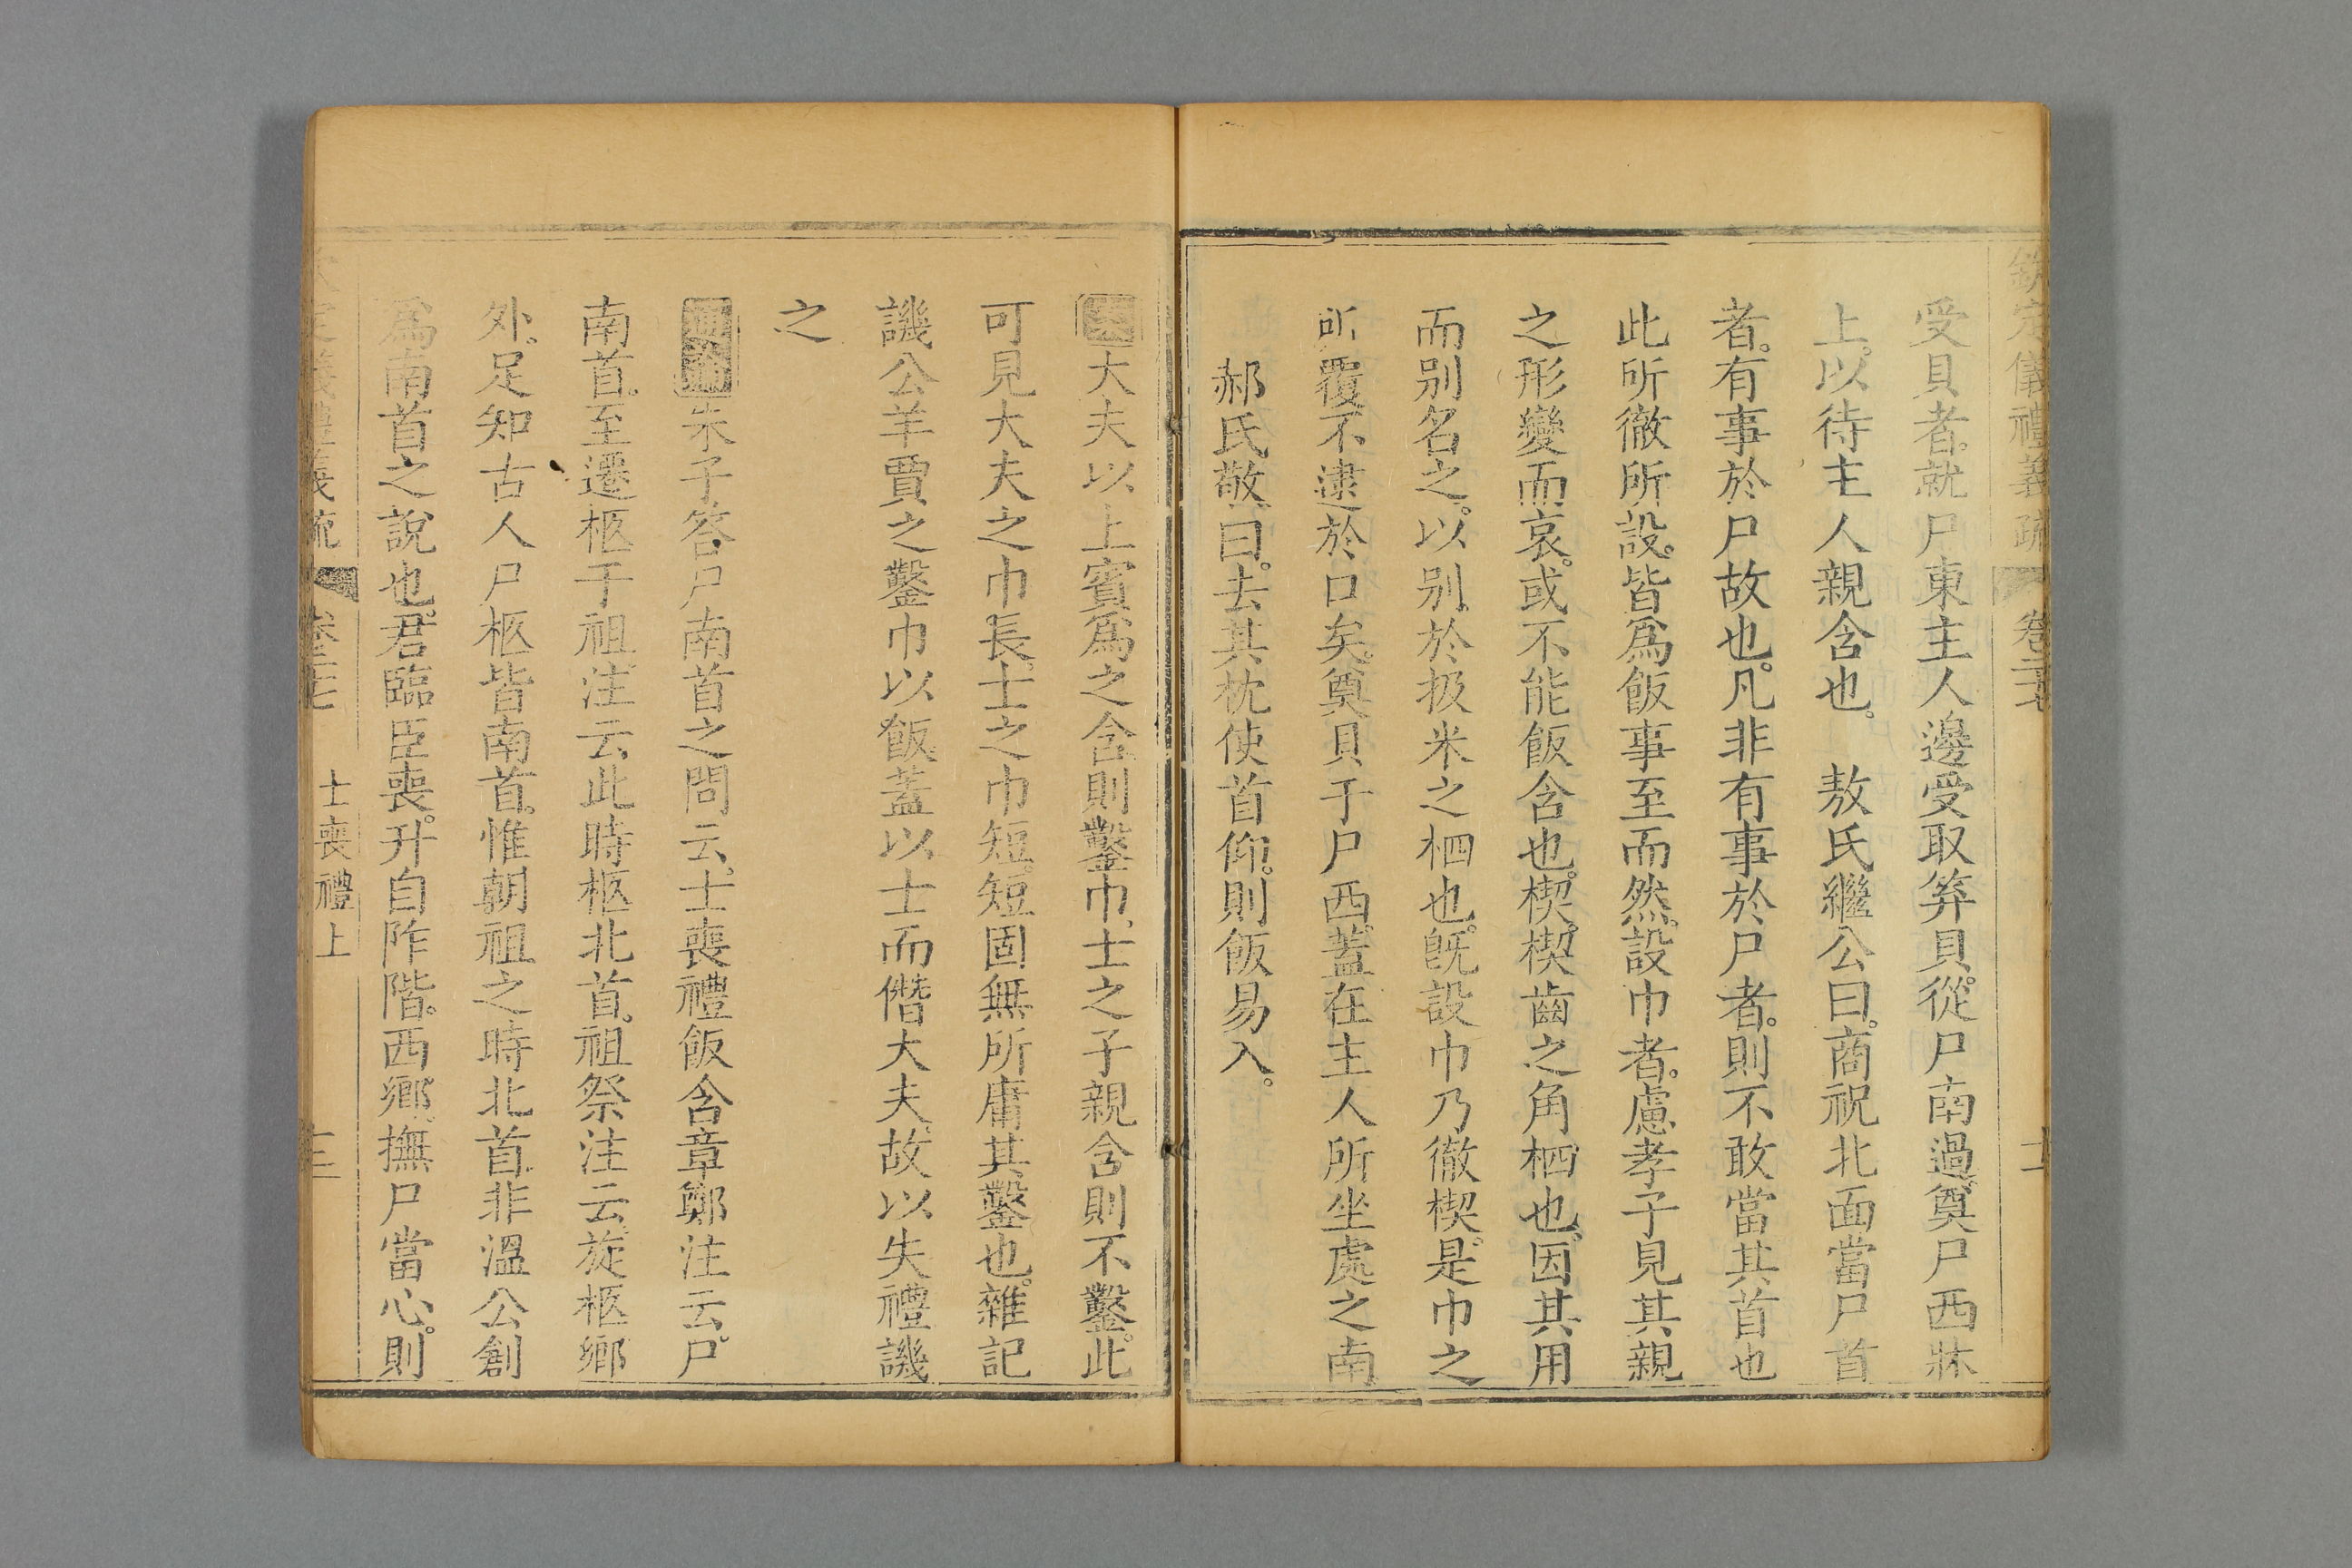 欽定儀禮義疏 卷二十七
受貝者就尸東主人邊受取笲貝從尸南過奠尸西牀
上以待主人親含也。 敖氏繼公曰。商祝北面當尸首
者。有事於尸故也。凡非有事於尸者。則不敢當其首也
此所徹所設。皆爲飯事至而然。設巾者。慮孝子見其親
之形變而哀。或不能飯含也。楔。楔齒之角柶也。因其用
而别名之。以别於扱米之柶也。旣設巾乃徹楔。是巾之
所覆不逮於口矣。奠貝于尸西。蓋在主人所坐處之南
郝氏敬曰。去其枕使首仰。則飯易入。
大夫以上賓爲之含則鑿巾。士之子親含則不鑿。此
可見大夫之巾長。士之巾短。短固無所庸其鑿也。雜記
譏公羊賈之鑿巾以飯。蓋以士而僭大夫。故以失禮譏
之
通論朱子答尸南首之問云。士喪禮飯含章鄭注云。尸
南首。至遷柩于祖注云。此時柩北首。祖祭注云。旋柩鄉
外。足知古人尸柩皆南首。惟朝祖之時北首。非溫公創
爲南首之說也。君臨臣喪。升自阼階。西鄉。撫尸當心。則
義禮義疏 卷二十七 士喪禮上